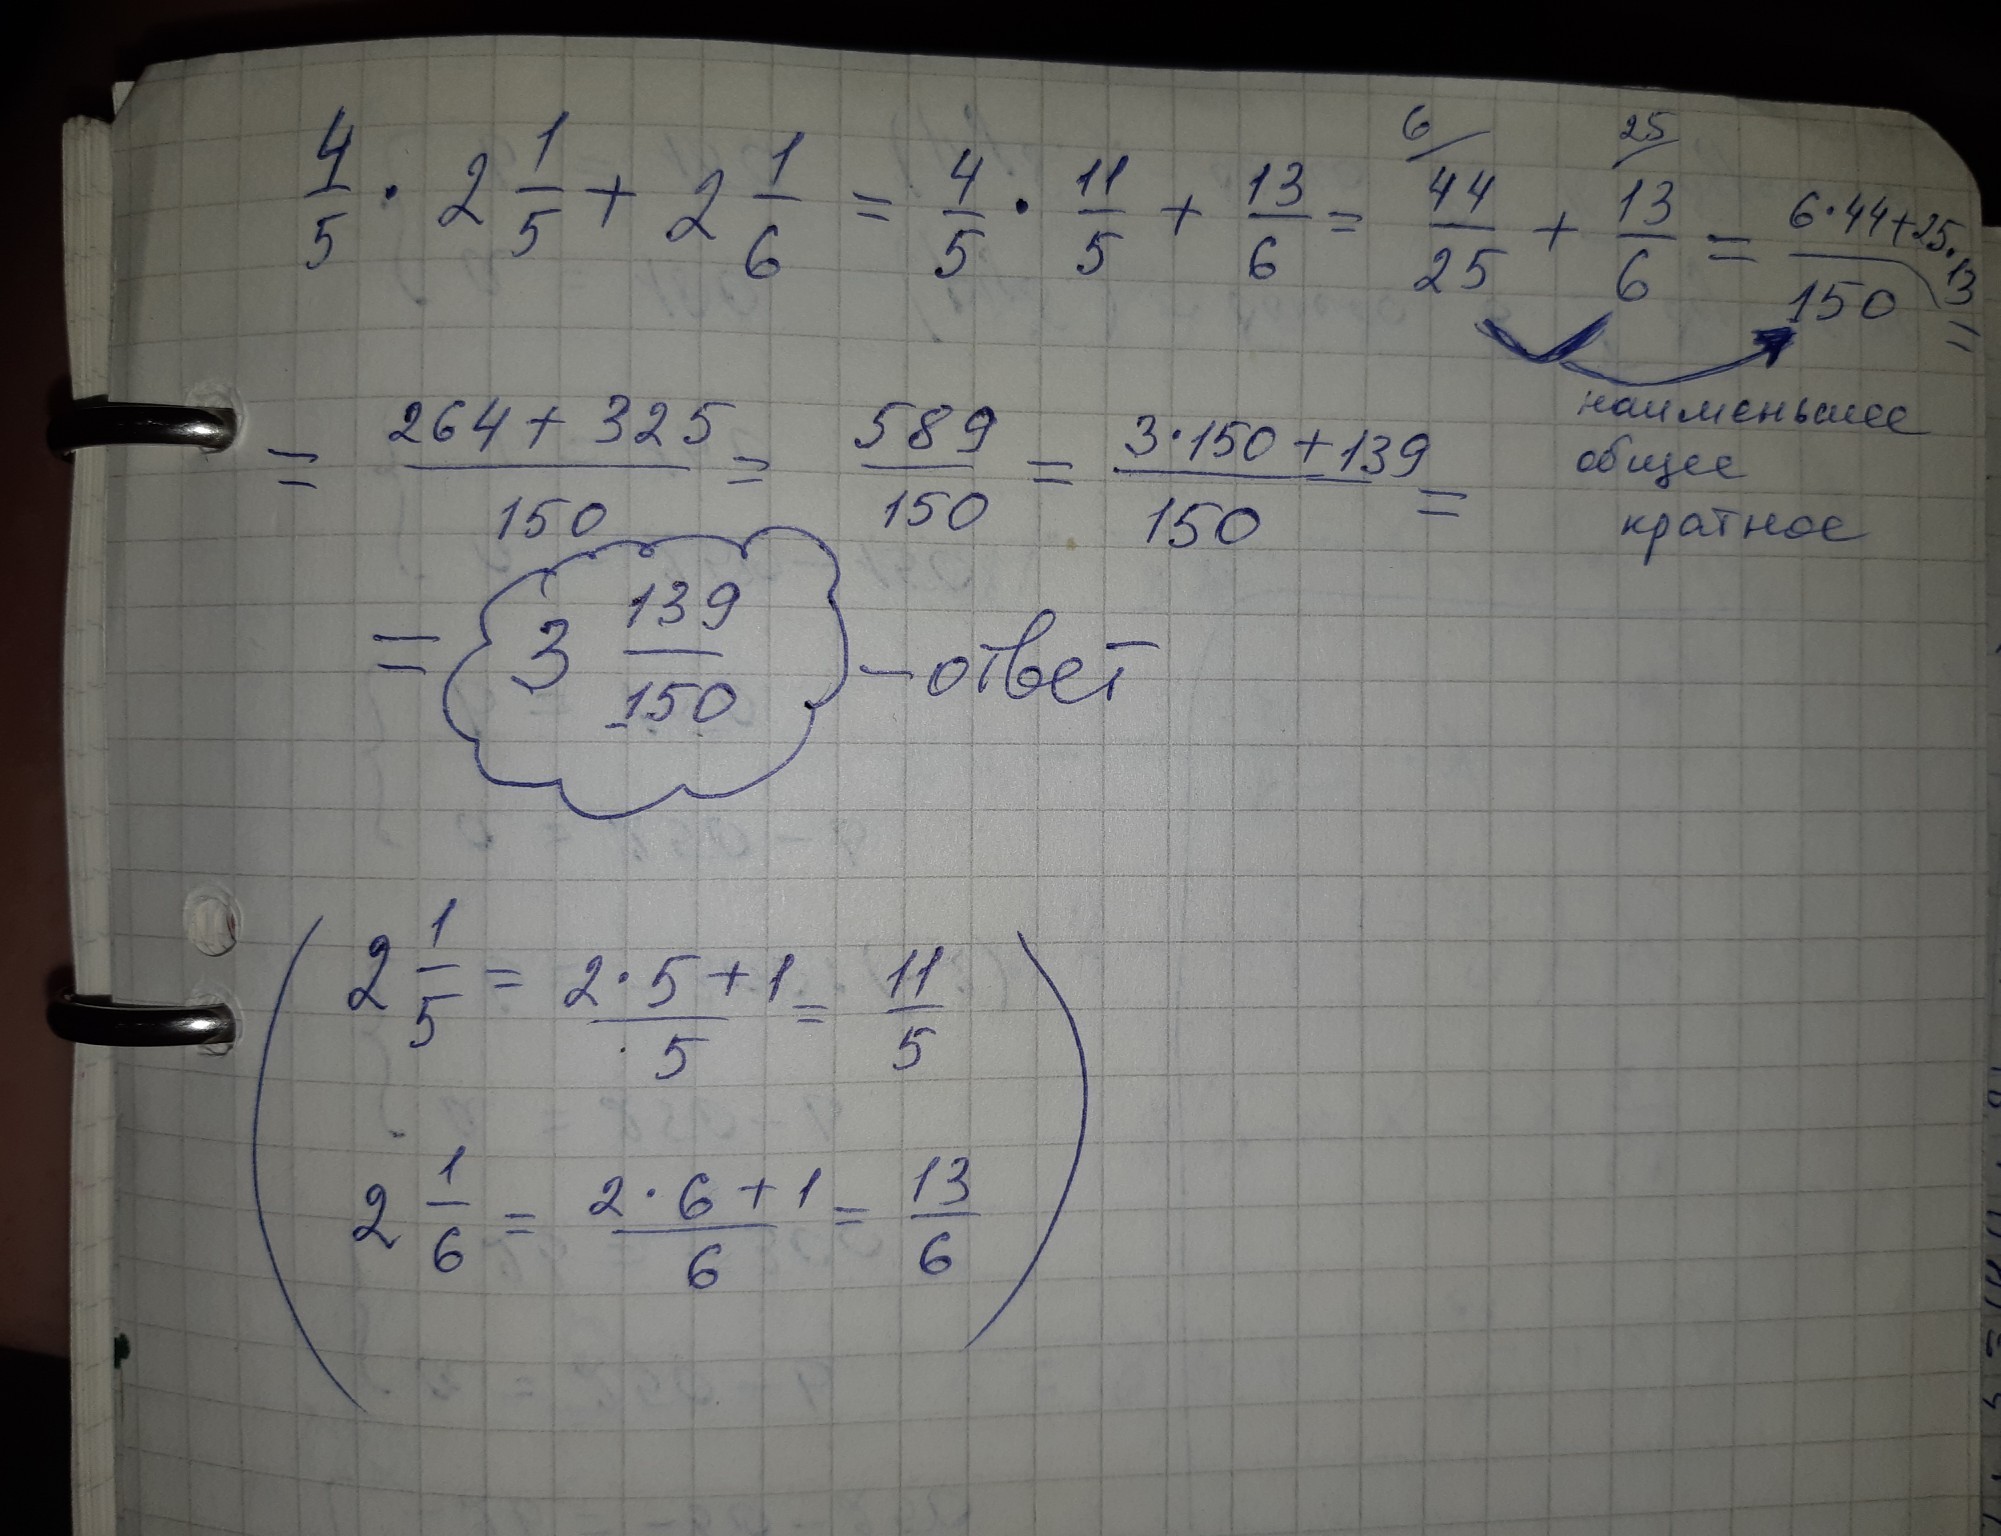 4/5 · 2 1/5 + 2 1/6 = 4/5 · 11/5 + 13/6 = 6/ 44/25 + 25/ 13/6 = (6·44+25·13)/150 =
наименьшее
общее
кратное
= (264 + 325)/150 = 589/150 = (3·150 + 139)/150 =
= 3 139/150 – ответ
(2 1/5 = (2·5+1)/5 = 11/5
2 1/6 = (2·6+1)/6 = 13/6)